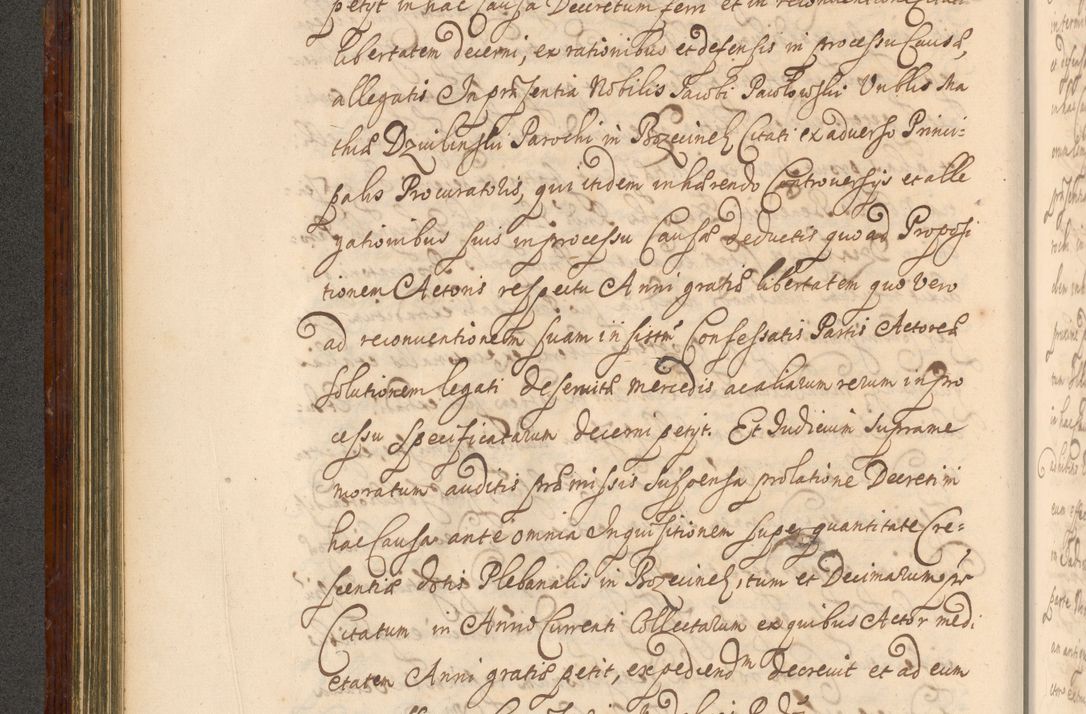 petyt in hac Causa Decretum ferri et in reconventione Citati
libertatem decerni, ex rationibus et defensis in processu Causæ,
allegatis In præsentia Nobilis Jacobi Pawłowski Vnblis Ma
thiæ Dzwilinski Parochi in Brzecinek Citati ex adverso Princi=
palis Procuratoris, qui itidem inhærendo Controversijs et alle
gationibus suis in processu Causæ deductis quoad Proposi
tionem Actoris respectu Anni gratiæ libertatem quo vero
ad reconventionem suam insistm Confessatis Partis Actoreæ
solutionem legati deservitæ mercedis ac aliarum rerum in pro
cessu specificatarum decerni petijt. Et Judicium suprame
moratum auditis præmissis suspensa prolatione Decreti in
hac Causa ante omnia Inquisitionem super quantitate Cre=
scentiæ dotis Plebanalis in Brzecinek, tum et Decimarum pr
Citatum in Anno Currenti Collectarum ex quibus Actor medi
etatem Anni gratiæ petit, expediendm decrevit et ad eum